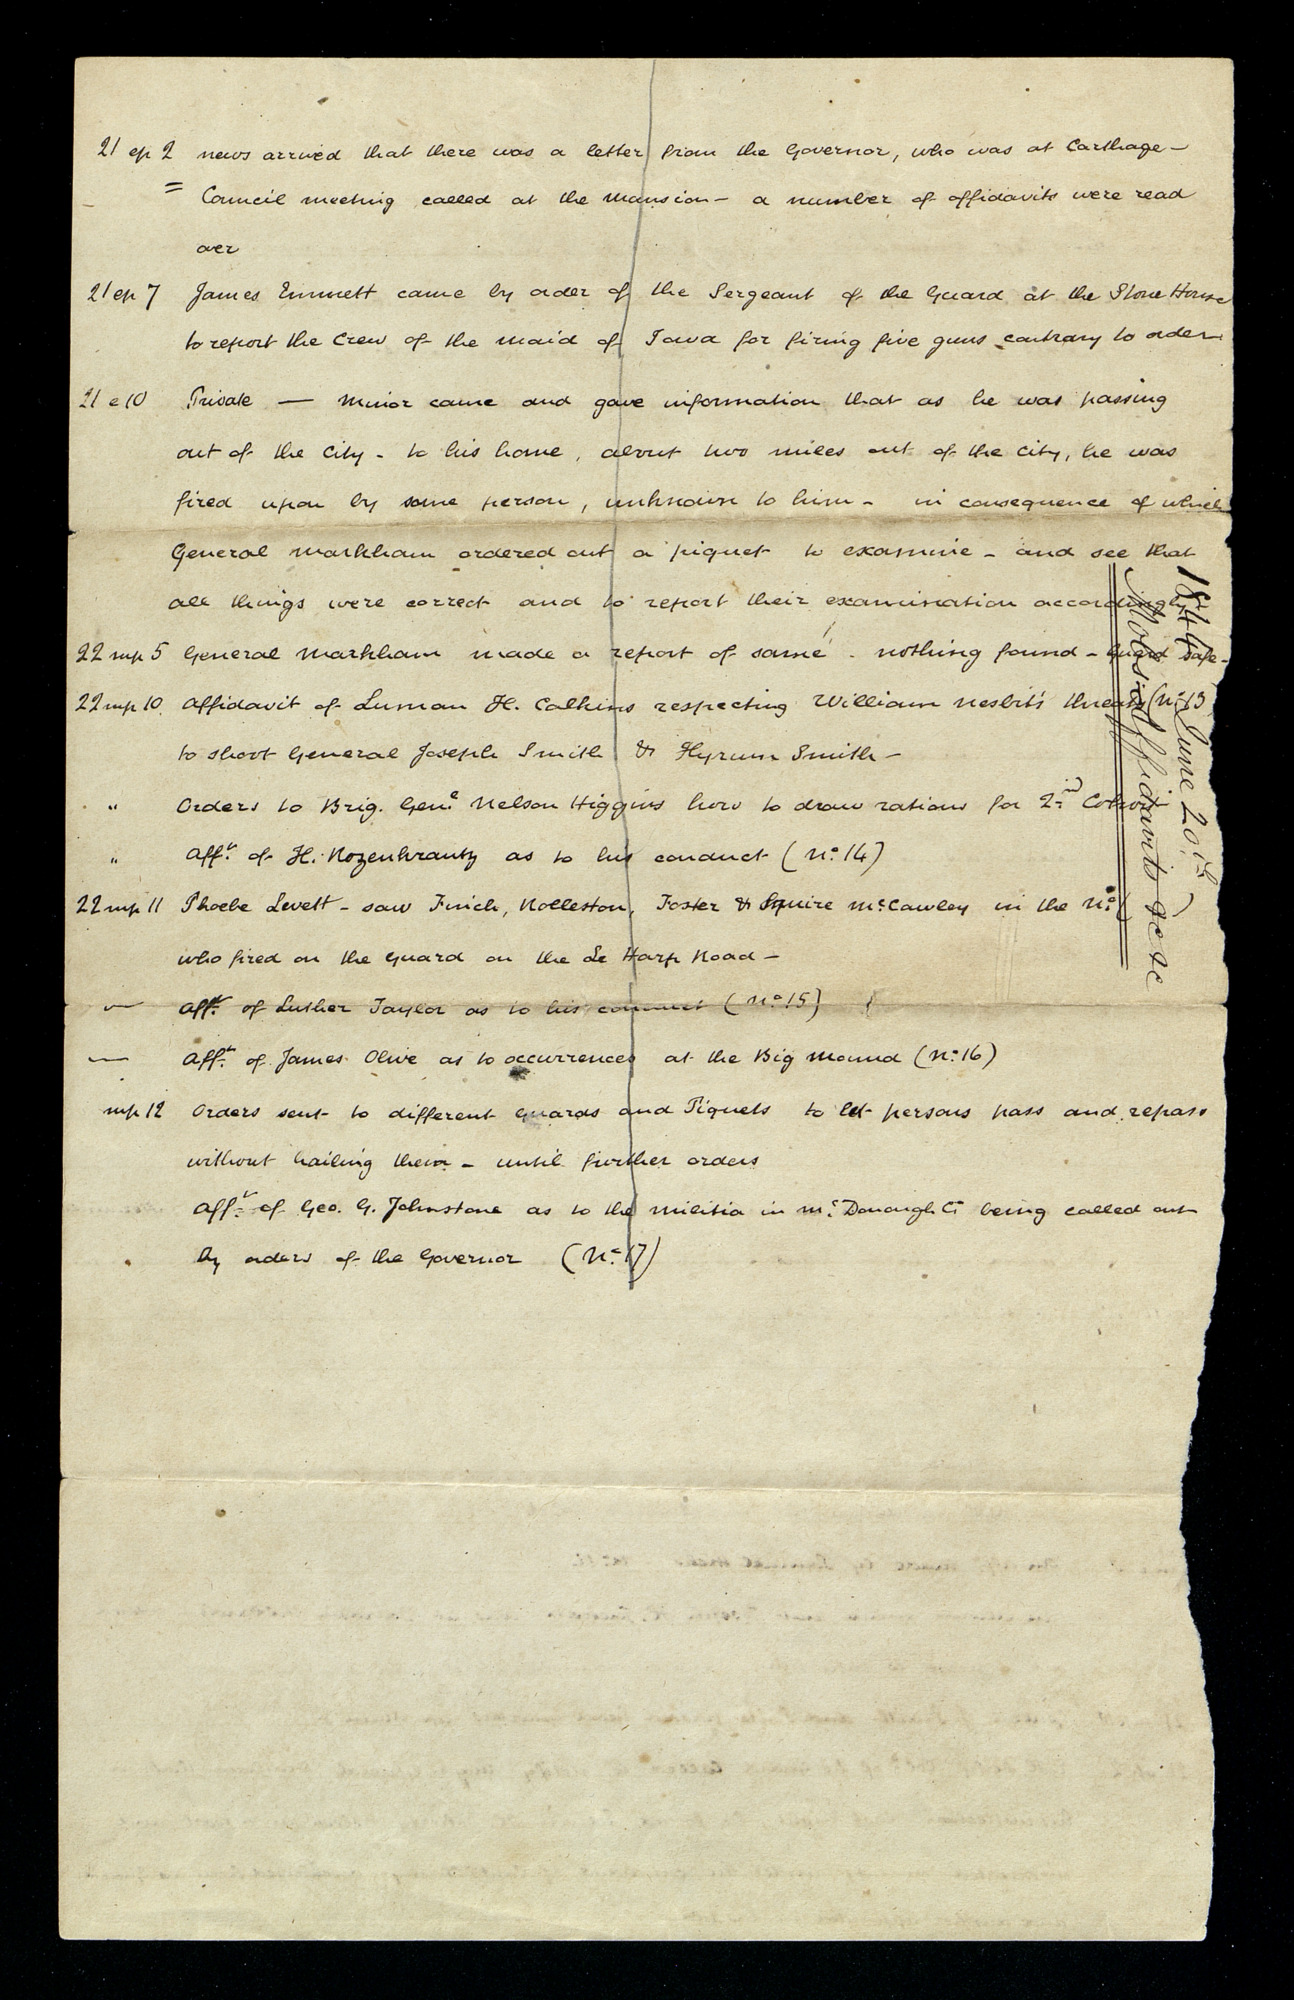 21 ep 2 news arrived that there was a letter from the Governor, who was at Carthage -
= Council meeting called at the mansion - a number of affidavits were read
over
21 ep 7 James Emmett came by order of the Sergeant of the Guard at the Stone House
to report the Crew of the Maid of Iowa for firing five guns contrary to order
21 e 10 Private — Minor came and gave information that as he was passing
out of the city - to his home, about two miles out of the city, he was
fired upon by some person, unknown to him - in consequence of which
General Markham ordered out a piquet to examine - and see that
all things were correct and to report their examination accordingly
22 mp 5 General Markham made a report of same - nothing found - Guard safe -
22 mp 10 Affidavit of Luman H. Calkins respecting William Nesbit's threats (No. 13
to shoot General Joseph Smith & Hyrum Smith -
" Orders to Brig. Genl. Nelson Higgins how to draw rations for 2nd Cohort
" Afft. of H. Rozenkrantz as to his conduct (No. 14)
22 mp 11 Phoebe Levett - saw Finch, Rolleston, Foster & Squire McCawley in the No.
who fired on the guard on the La Harpe Road -
— Afft. of Luther Taylor as to his conduct (No. 15)
— Afft. of James Olive as to occurrences at the Big Mound (No. 16)
mp 12 Orders sent to different guards and Piquets to let persons pass and repass
without hailing them - until further orders
Afft. of Geo. G. Johnstone as to the militia in Mc.Donough Co. being called out
by orders of the Governor (No. 17)
1844
June 20th
Mobs, Affidavits &c &c